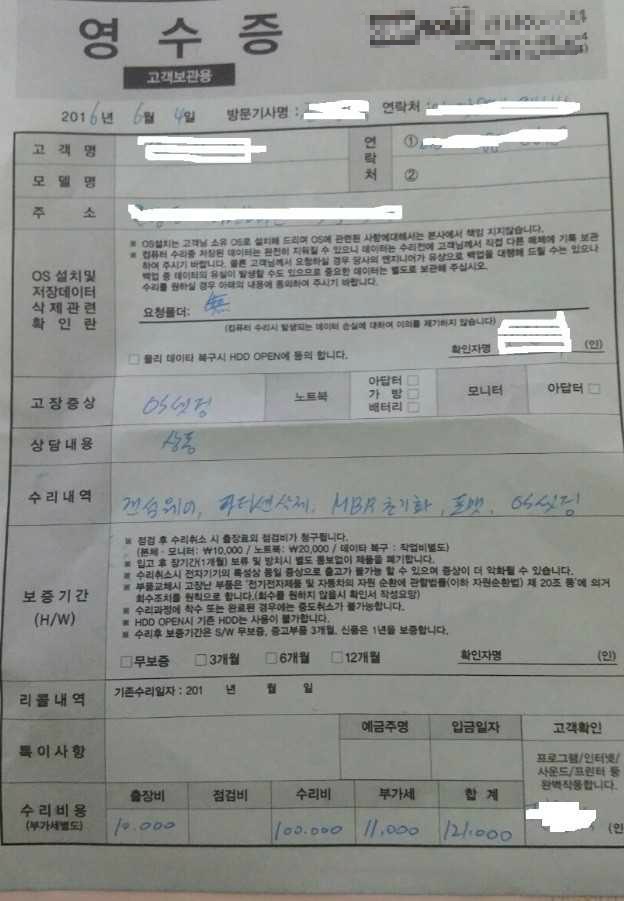 영 수 증
고객보관용
2016년 6월 4일 방문기사명 : 연락처 :
고 객 명
연락처
①
모 델 명
②
주 소
OS 설치및
저장데이터
삭제관련
확 인 란
※ OS설치는 고객님 소유 OS로 설치해 드리며 OS에 관련된 사항에대해서는 본사에서 책임 지지않습니다.
※ 컴퓨터 수리중 저장된 데이터는 완전히 지워질 수 있으니 데이터는 수리전에 고객님께서 직접 다른 매체에 기록 보관
하여 주시기 바랍니다. 물론 고객님께서 요청하실 경우 당사의 엔지니어가 유상으로 백업을 대행해 드릴 수는 있으나
백업 중 데이터의 유실이 발생할 수도 있으므로 중요한 데이터는 별도로 보관해 주십시오.
수리를 원하실 경우 아래의 내용에 동의하여 주시기 바랍니다.
요청폴더: 無
(컴퓨터 수리시 발생되는 데이터 손실에 대하여 이의를 제기하지 않습니다)
□ 물리 데이타 복구시 HDD OPEN에 동의 합니다.
확인자명 (인)
고 장 증 상
OS셋팅
노트북
아답터 □
가 방 □
배터리 □
모니터
아답터 □
상 담 내 용
상동
수 리 내 역
랜섬웨어, 파티션삭제, MBR초기화, 포맷, OS셋팅
보 증 기 간
(H/W)
※ 점검 후 수리취소 시 출장료외 점검비가 청구됩니다.
(본체 · 모니터: ₩10,000 / 노트북: ₩20,000 / 데이타 복구 : 작업비별도)
※ 입고 후 장기간(1개월) 보류 및 방치시 별도 통보없이 제품을 폐기합니다.
※ 수리취소시 전자기기의 특성상 동일 증상으로 출고가 불가능 할 수 있으며 증상이 더 악화될 수 있습니다.
※ 부품교체시 고장난 부품은 '전기전자제품 및 자동차의 자원 순환에 관합법률(이하 자원순환법) 제 20조 등'에 의거
회수조치를 원칙으로 합니다.(회수를 원하지 않을시 확인서 작성요망)
※ 수리과정에 착수 또는 완료된 경우에는 중도취소가 불가능합니다.
※ HDD OPEN시 기존 HDD는 사용이 불가합니다.
※ 수리후 보증기간은 S/W 무보증, 중고부품 3개월, 신품은 1년을 보증합니다.
□무보증 □3개월 □6개월 □12개월 확인자명 (인)
리 콜 내 역
기존수리일자 : 201 년 월 일
특 이 사 항
예금주명
입금일자
고객확인
프로그램/인터넷/
사운드/프린터 등
완벽작동합니다.
(인
수 리 비 용
(부가세별도)
출장비 점검비 수리비 부가세 합 계
10.000 100.000 11,000 121.000